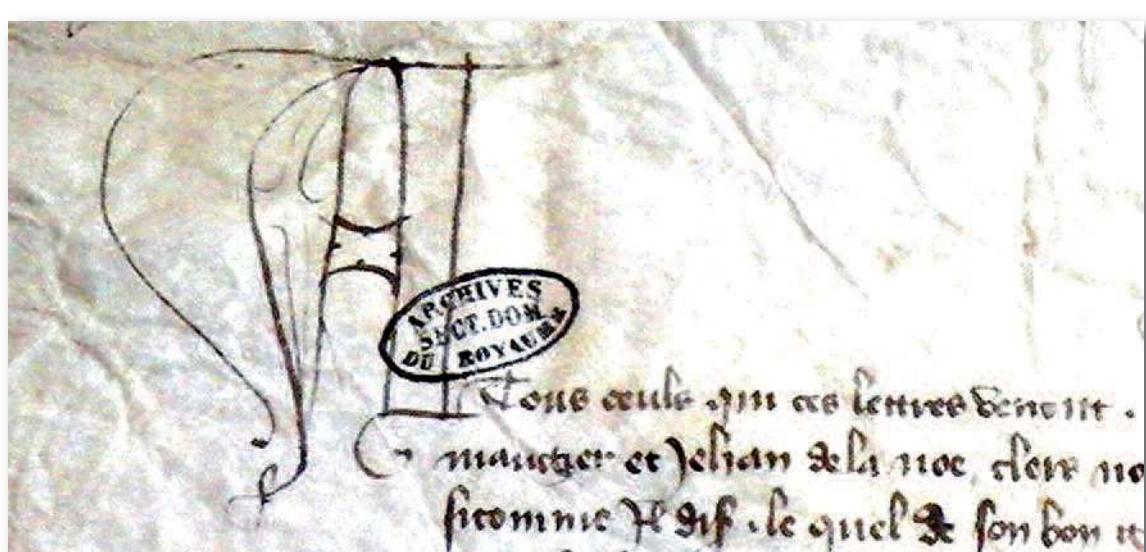 A
ARCHIVES
SECT. DOM.
DU ROYAUME
Tous ceuls qui ces lettres verront .
mauger et Jehan de la noe, clers no
sicomme Il dist . le quel de son bon